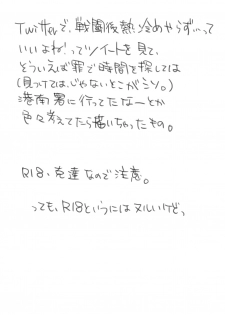 Twitterで、戦闘後熱冷めやらず…って
いいよね！ってツイートを見て、
どういえば罪で時間を探しては
(見つけては、じゃないとこがミソ。)
港南署に行ってたなーとか
色々考えてたら描いちゃったもの。
R18、克達なので注意。
っても、R18というにはヌルいけどっ